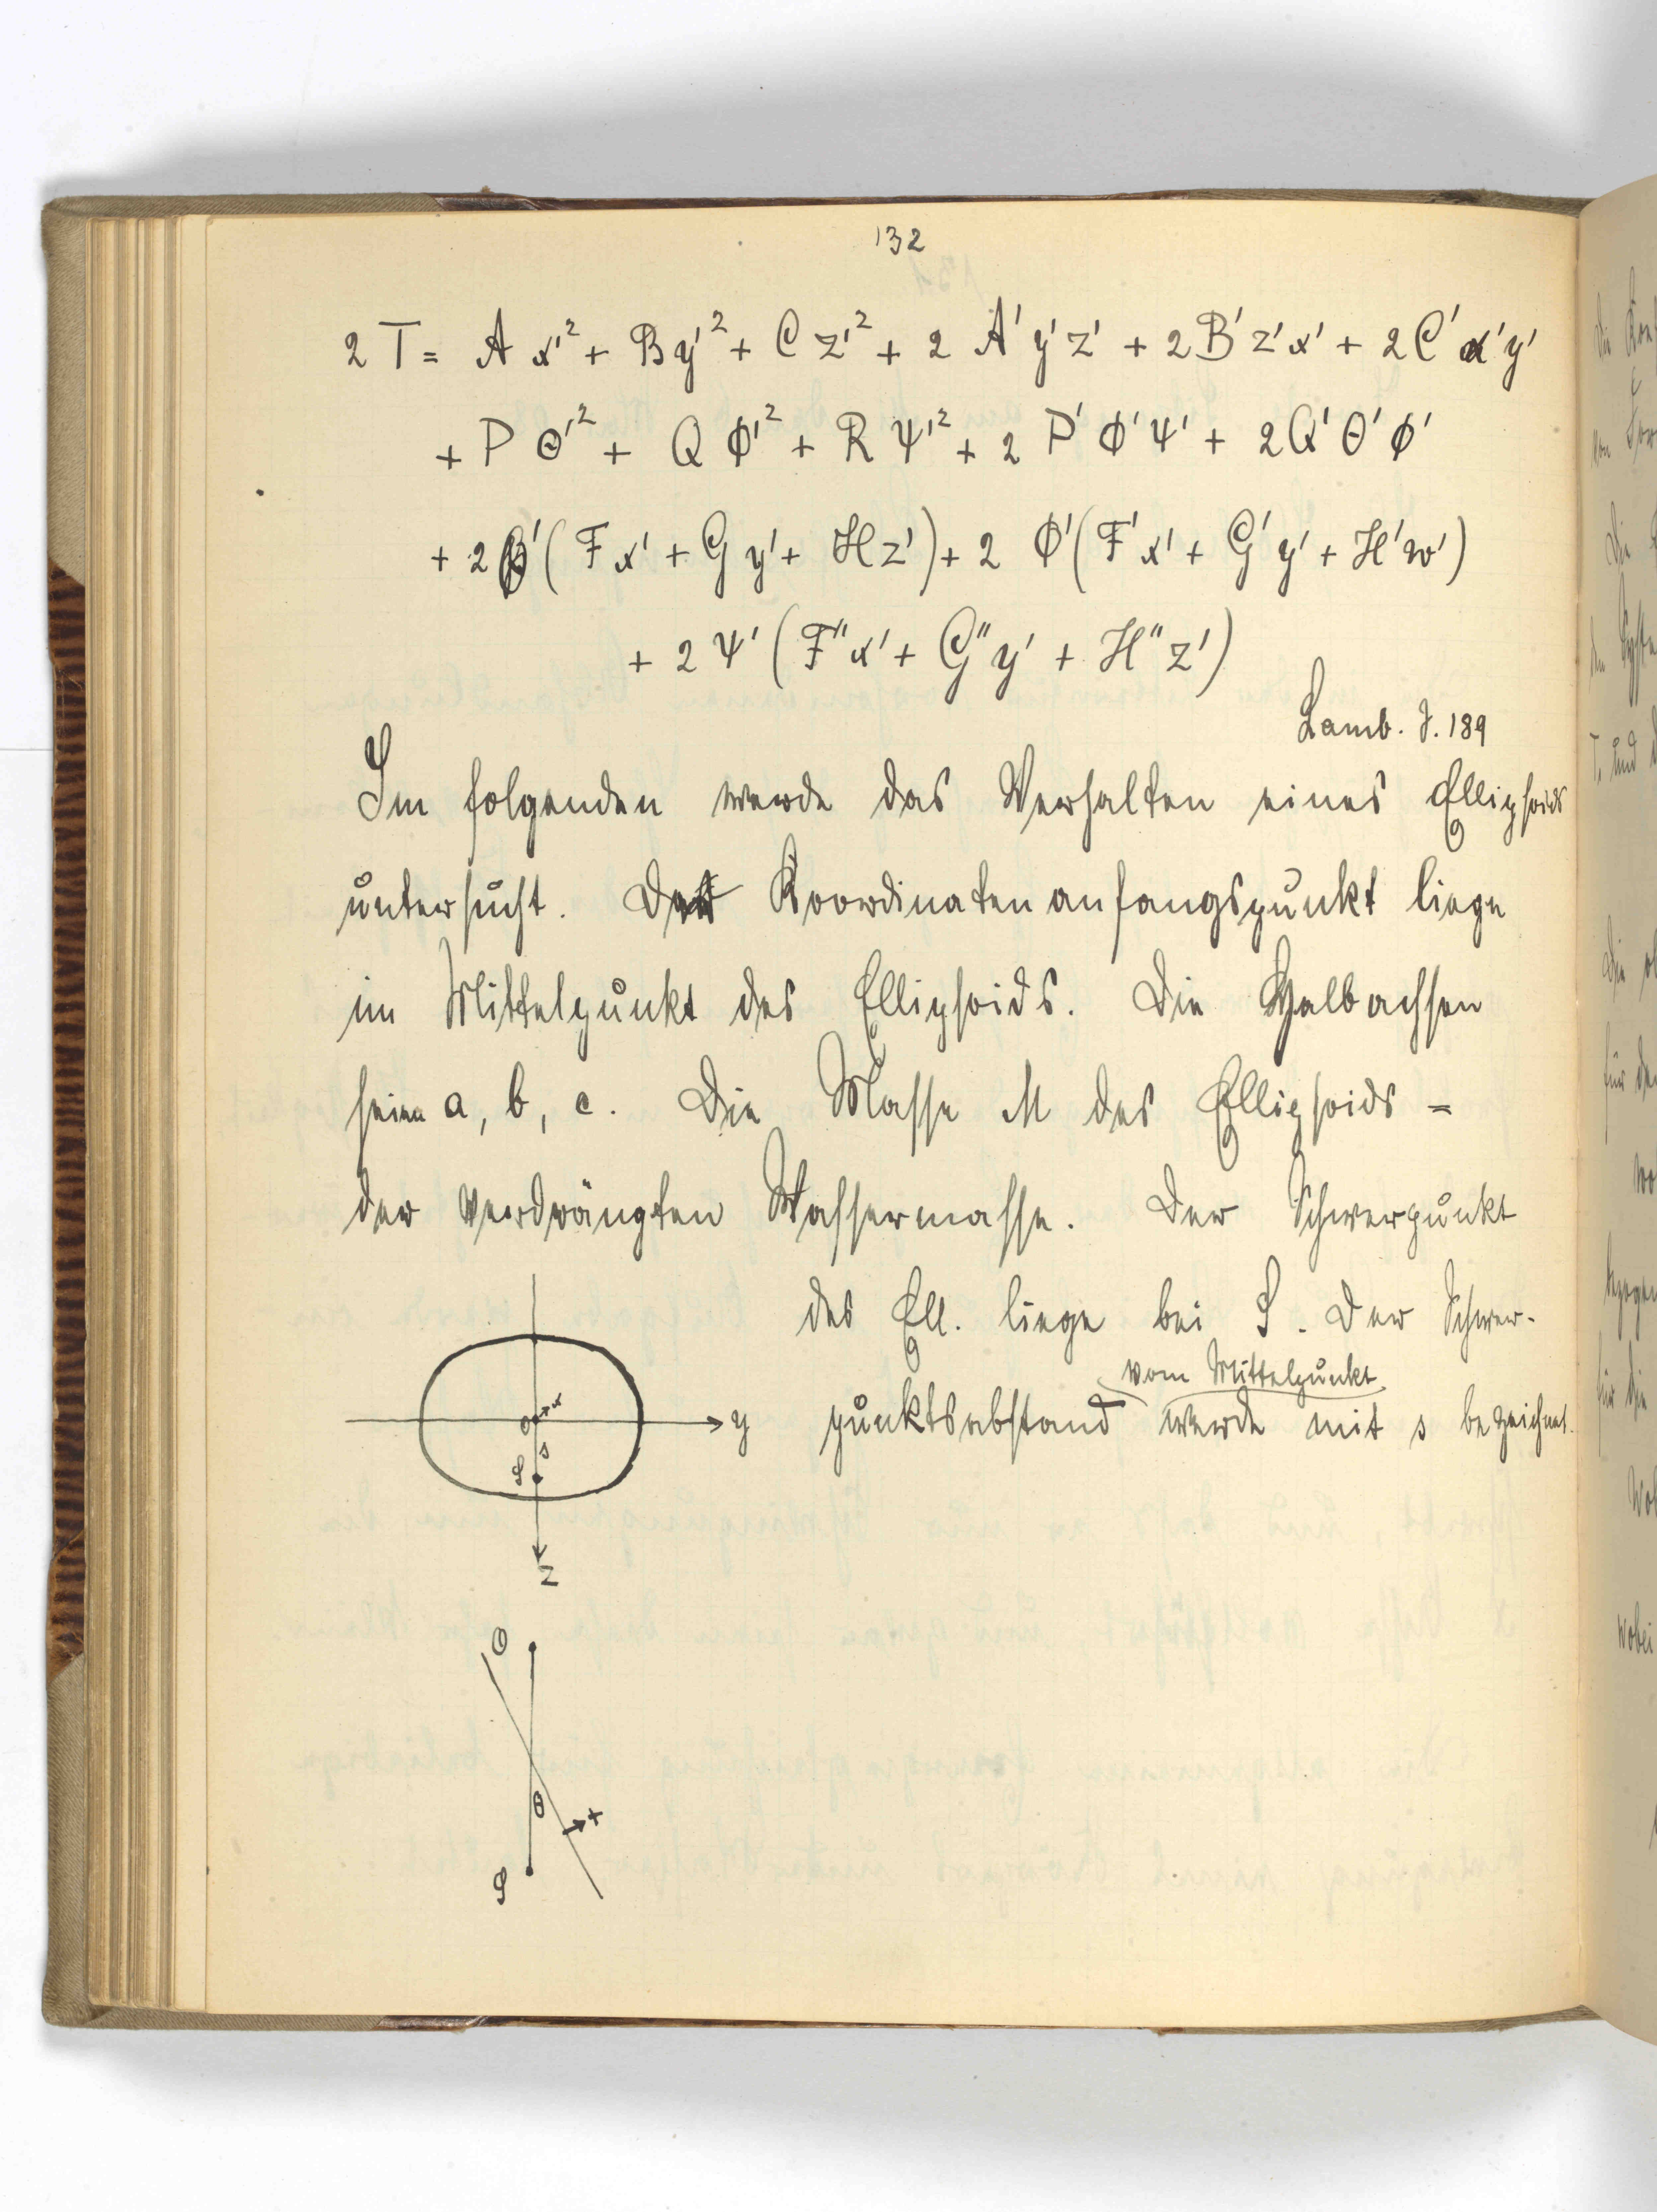 132
2 T = A x'² + B y'² + C z'² + 2 A' y' z' + 2 B' z' x' + 2 C' x' y'
+ P Θ'² + Q Φ'² + R Ψ'² + 2 P' Φ' Ψ' + 2 Q' Θ' Φ'
+ 2 ( F x' + G y' + H z' ) + 2 Φ' ( F' x' + G' y' + H' w' )
+ 2 Ψ' ( F'' x' + G'' y' + H'' z' )
Lamb. S. 189
Im folgenden werde das Verhalten eines Ellipsoids
untersucht. Der Koordinatenanfangspunkt liege
im Mittelpunkt des Ellipsoids. Die Halbachsen
seien a, b, c. Die Masse M des Ellipsoids =
der verdrängten Wassermasse. Der Schwerpunkt
des Ell. liege bei S. Der Schwer-
vom Mittelpunkt
punktsabstand werde mit s bezeichnet.
o x
y
s
S
z
O
θ
+
S